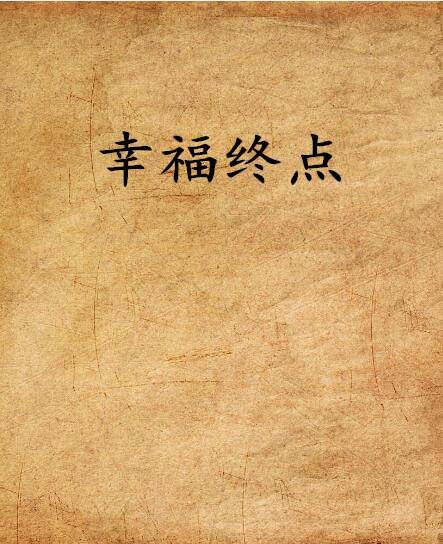 幸福终点